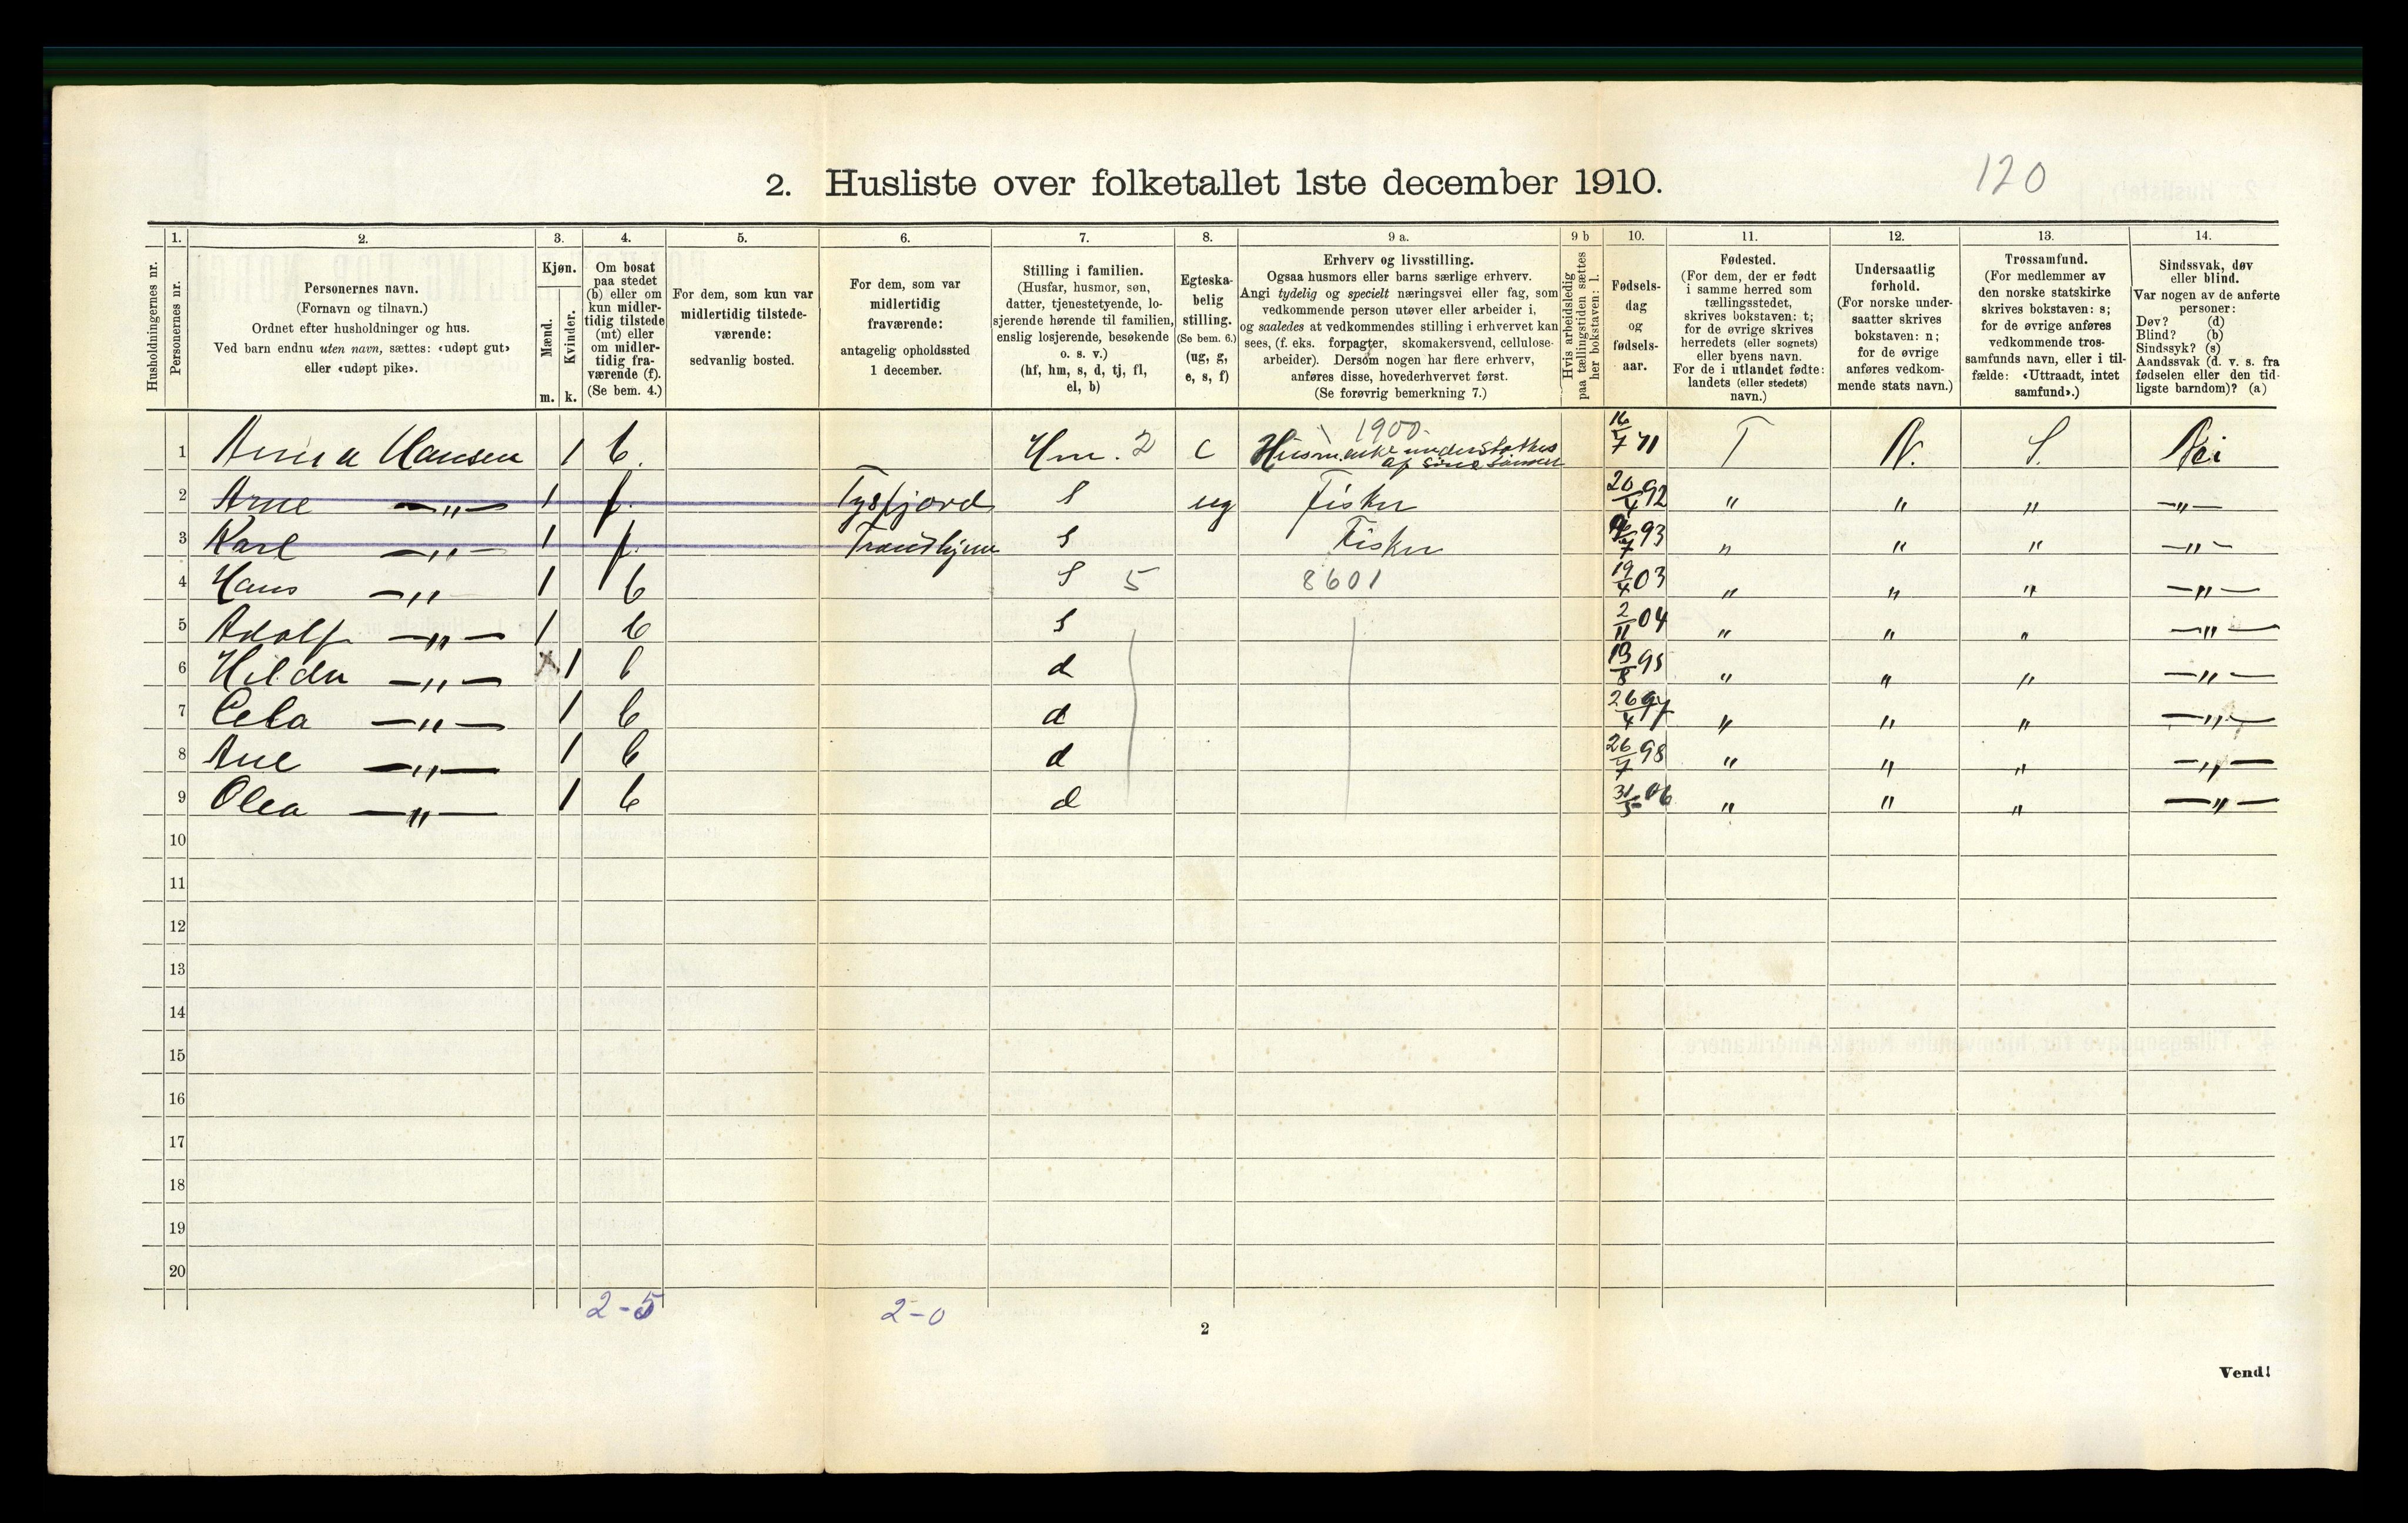 120
2. Husliste over folketallet 1ste december 1910.
Husholdningernes nr.
1. Personernes nr.
2. Personernes navn.
(Fornavn og tilnavn.)
Ordnet efter husholdninger og hus.
Ved barn endnu uten navn, sættes: «udøpt gut»
eller «udøpt pike».
3. Kjøn.
Mænd. m.
Kvinder. k.
4. Om bosat
paa stedet
(b) eller om
kun midler-
tidig tilstede
(mt) eller
om midler-
tidig fra-
værende (f).
(Se bem. 4.)
5. For dem, som kun var
midlertidig tilstede-
værende:
sedvanlig bosted.
6. For dem, som var
midlertidig
fraværende:
antagelig opholdssted
1 december.
7. Stilling i familien.
(Husfar, husmor, søn,
datter, tjenestetyende, lo-
sjerende hørende til familien,
enslig losjerende, besøkende
o. s. v.)
(hf, hm, s, d, tj, fl,
el, b)
8. Egteska-
belig
stilling.
(Se bem. 6.)
(ug, g,
e, s, f)
9 a. Erhverv og livsstilling.
Ogsaa husmors eller barns særlige erhverv.
Angi tydelig og specielt næringsvei eller fag, som
vedkommende person utøver eller arbeider i,
og saaledes at vedkommendes stilling i erhvervet kan
sees, (f. eks. forpagter, skomakersvend, cellulose-
arbeider). Dersom nogen har flere erhverv,
anføres disse, hovederhvervet først.
(Se forøvrig bemerkning 7.)
9 b Hvis arbeidsledig
paa tællingstiden sættes
her bokstaven: l.
10. Fødsels-
dag
og
fødsels-
aar.
11. Fødested.
(For dem, der er født
i samme herred som
tællingsstedet,
skrives bokstaven: t;
for de øvrige skrives
herredets (eller sognets)
eller byens navn.
For de i utlandet fødte:
landets (eller stedets)
navn.)
12. Undersaatlig
forhold.
(For norske under-
saatter skrives
bokstaven: n;
for de øvrige
anføres vedkom-
mende stats navn.)
13. Trossamfund.
(For medlemmer av
den norske statskirke
skrives bokstaven: s;
for de øvrige anføres
vedkommende tros-
samfunds navn, eller i til-
fælde: «Uttraadt, intet
samfund».)
14. Sindssvak, døv
eller blind.
Var nogen av de anførte
personer:
Døv? (d)
Blind? (b)
Sindssyk? (s)
Aandssvak (d. v. s. fra
fødselen eller den tid-
ligste barndom)? (a)
1900
1 Anna Hansen 1 b. Hm. 2 e Husm.enke understøttes af sine sønner 16/7 71 T N. S. Nei
2 Arne —"— 1 f. Tysfjord S ug Fisker 20/4 92 " " " —"—
3 Karl —"— 1 f. Trondhjem S Fisker /7 93 " " " —"—
4 Hans —"— 1 b S 5 8601 19/4 03 " " " —"—
5 Adolf —"— 1 b S 2/11 04 " " " —"—
6 Hilda —"— 1 b d 13/8 95 " " " —"—
7 —"— 1 b d 26/4 97 " " " —"—
8 Ane —"— 1 b d 26/7 98 " " " —"—
9 Olea —"— 1 b d 31/5 06 " " " —"—
10
11
12
13
14
15
16
17
18
19
20
2-5 2-0
2
Vend!